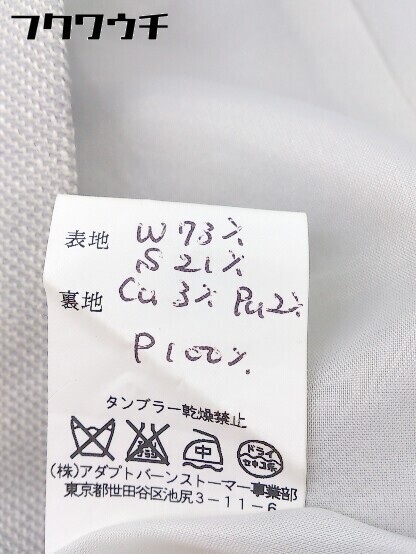 フクワウチ
表地 W 73%
S 21%
裏地 Cu 3% Pu 2%
P 100%
タンブラー乾燥禁止
中
ドライ
セキユ系
(株)アダプトバーンストーマー事業部
東京都世田谷区池尻3-11-6